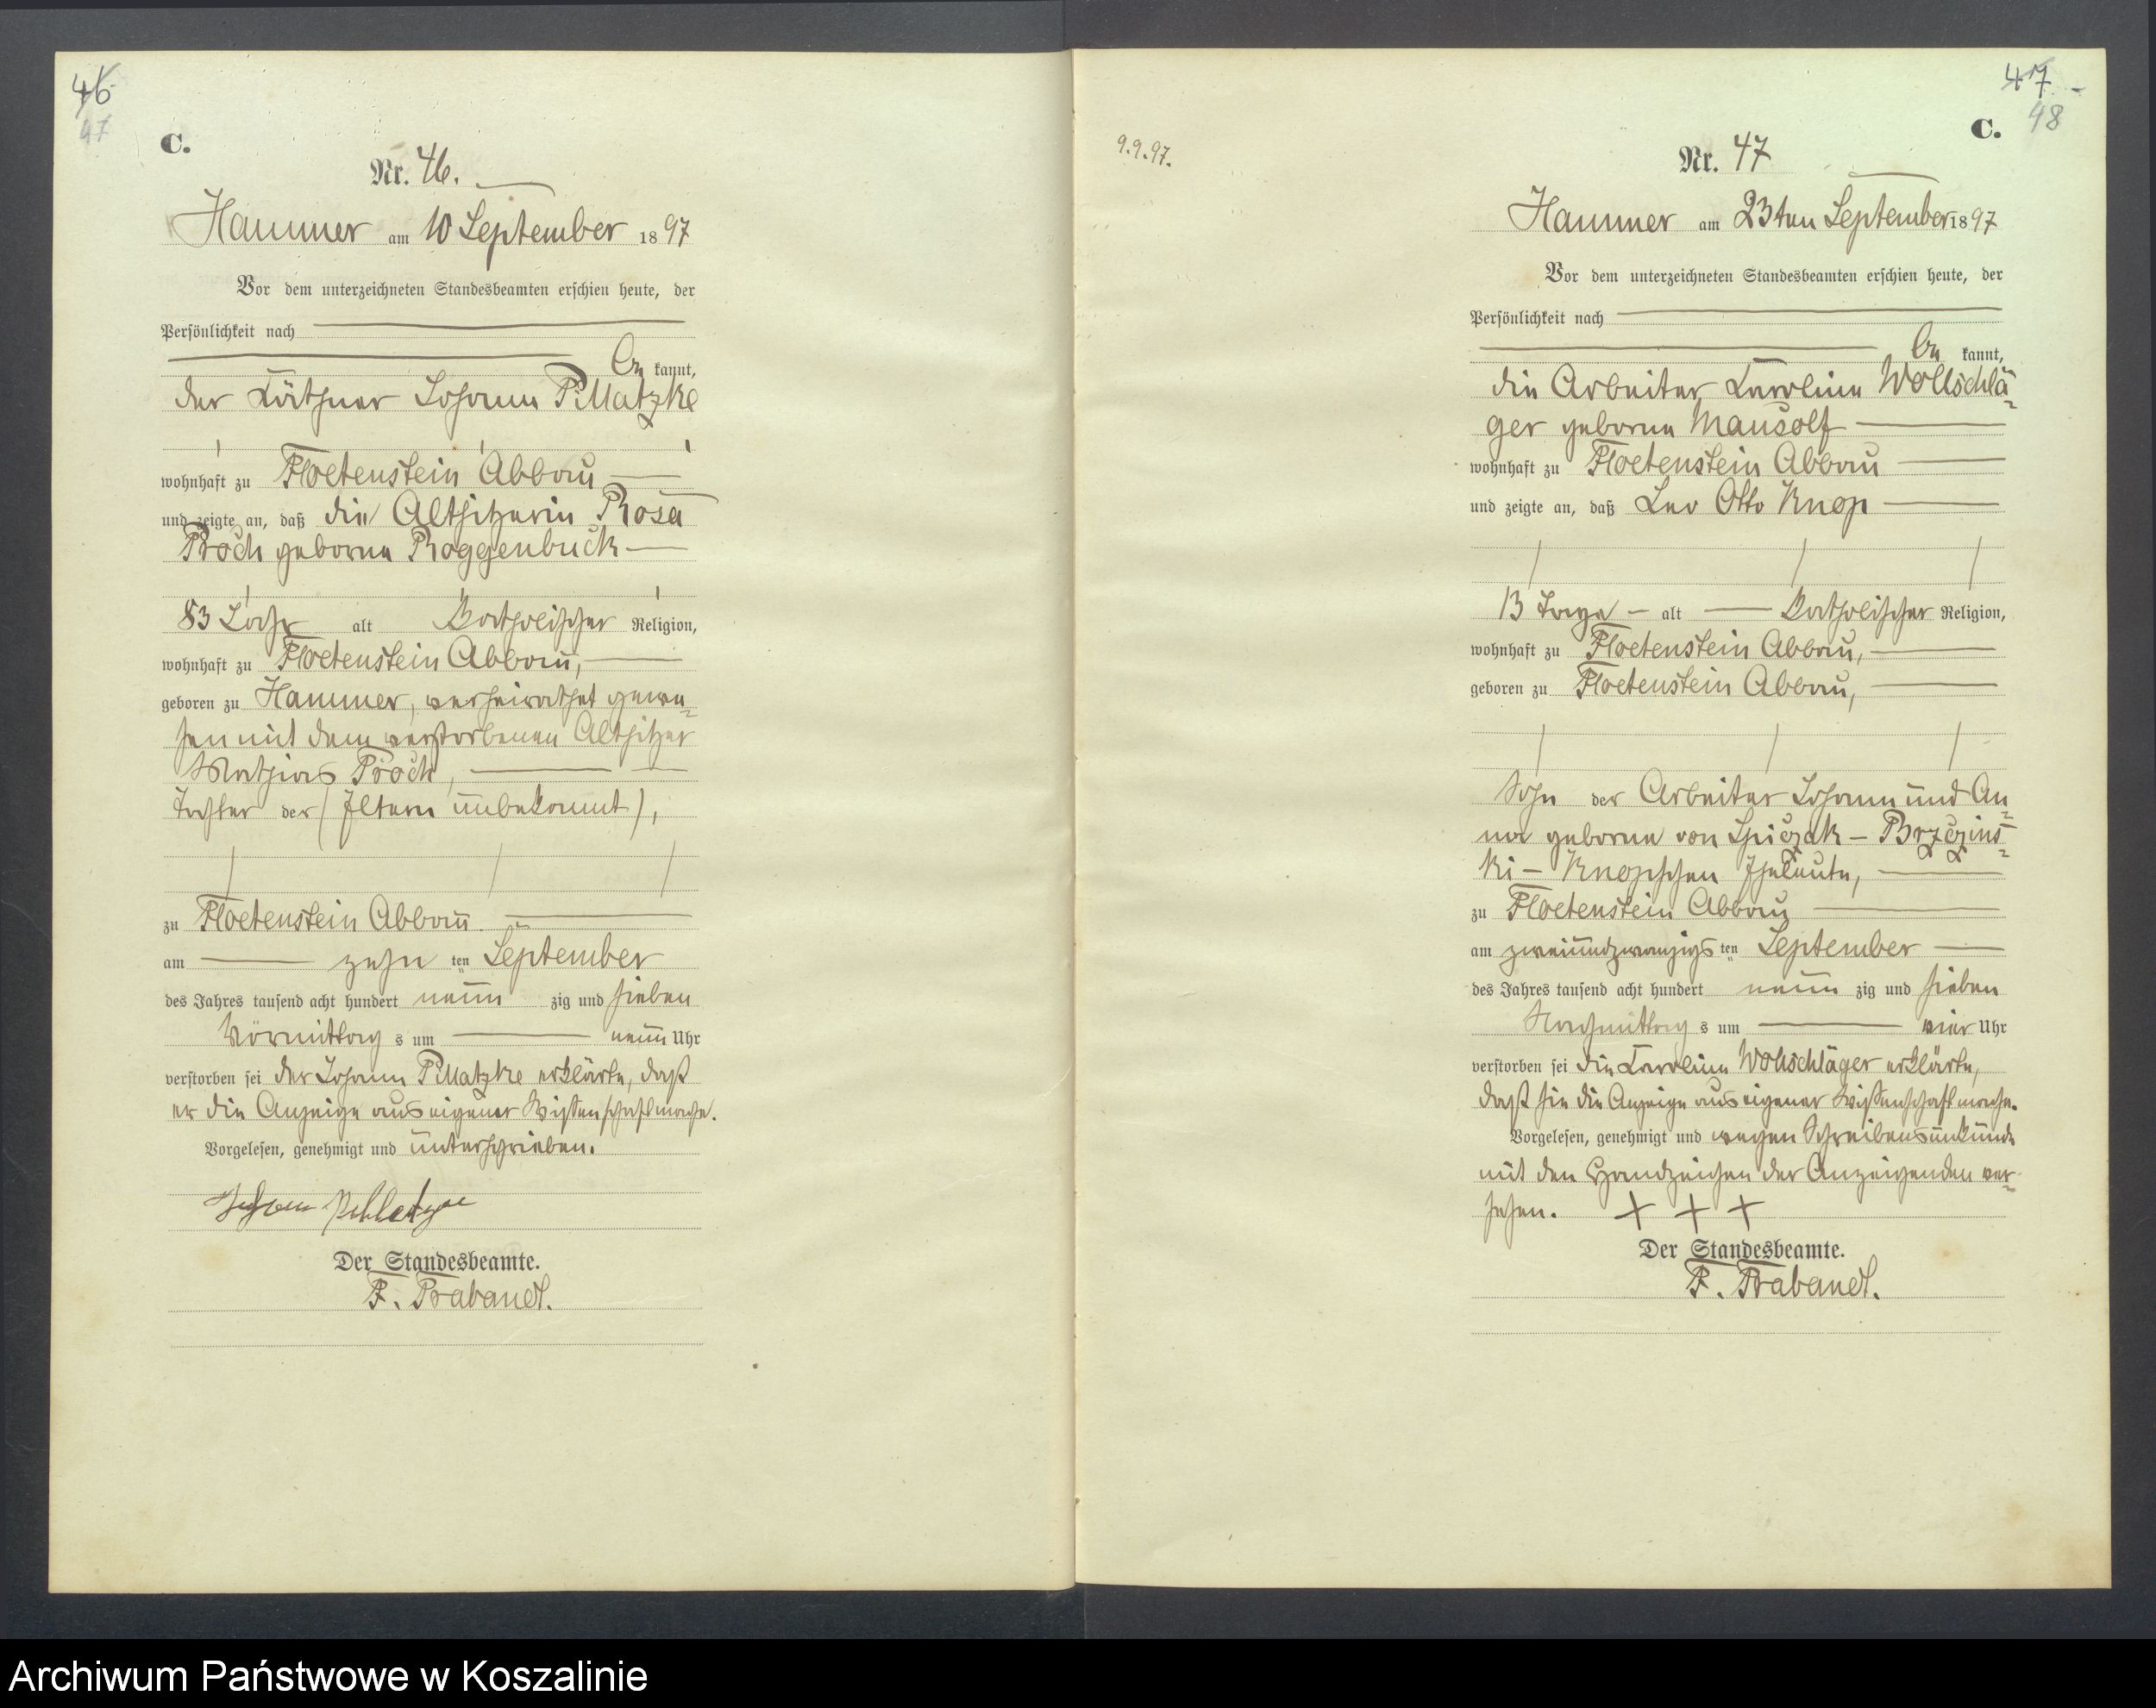 46
47
C.
Nr. 46.
Hammer am 10 September 1897
Vor dem unterzeichneten Standesbeamten erschien heute, der
Persönlichkeit nach
be kannt,
der Käthner Johann Pillatzke
wohnhaft zu Floetenstein Abbau
und zeigte an, daß die Altsitzerin Rosa
Proch geborne Roggenbuck
83 Jahr alt Katholischer Religion,
wohnhaft zu Floetenstein Abbau,
geboren zu Hammer, verheirathet gewe-
sen mit dem verstorbenen Altsitzer
Mathias Proch,
Tochter der (Eltern unbekannt),
zu Floetenstein Abbau
am zehn ten September
des Jahres tausend acht hundert neun zig und sieben
Vormittag s um neun Uhr
verstorben sei der Johann Pillatzke erklärte, daß
er die Anzeige aus eigener Wissenschaft mache.
Vorgelesen, genehmigt und unterschrieben.
Johann
Der Standesbeamte.
F. Prabandt.
9.9.97.
47
48
C.
Nr. 47
Hammer am 23ten September 1897
Vor dem unterzeichneten Standesbeamten erschien heute, der
Persönlichkeit nach
be kannt,
die Arbeiter Karoline Wollschlä-
ger geborne Mausolf
wohnhaft zu Floetenstein Abbau
und zeigte an, daß Leo Otto Knop
13 Tage alt Katholischer Religion,
wohnhaft zu Floetenstein Abbau,
geboren zu Floetenstein Abbau,
Sohn der Arbeiter Johann und An-
na geborne von Spiczak - Brzezins-
ki - Knopschen Eheleute,
zu Floetenstein Abbau
am zweiundzwanzigs ten September
des Jahres tausend acht hundert neun zig und sieben
Nachmittag s um vier Uhr
verstorben sei die Karoline Wollschläger erklärte,
daß sie die Anzeige aus eigener Wissenschaft mache.
Vorgelesen, genehmigt und wegen Schreibensunkunde
mit den Handzeichen der Anzeigenden ver-
sehen. + + +
Der Standesbeamte.
F. Prabandt.
Archiwum Państwowe w Koszalinie